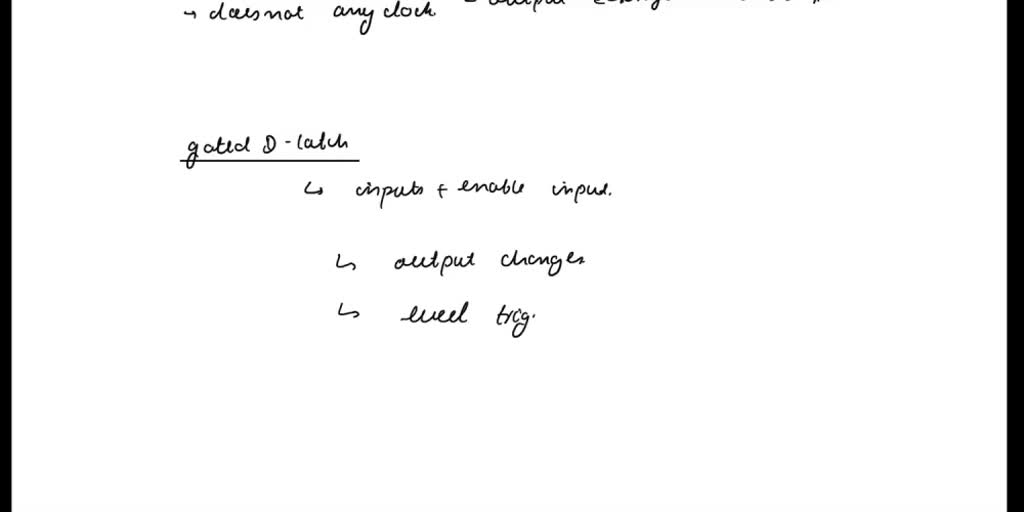 ↳ does not any clock - output
gated D-latch
↳ inputs + enable input.
↳ output changes
↳ level trig.